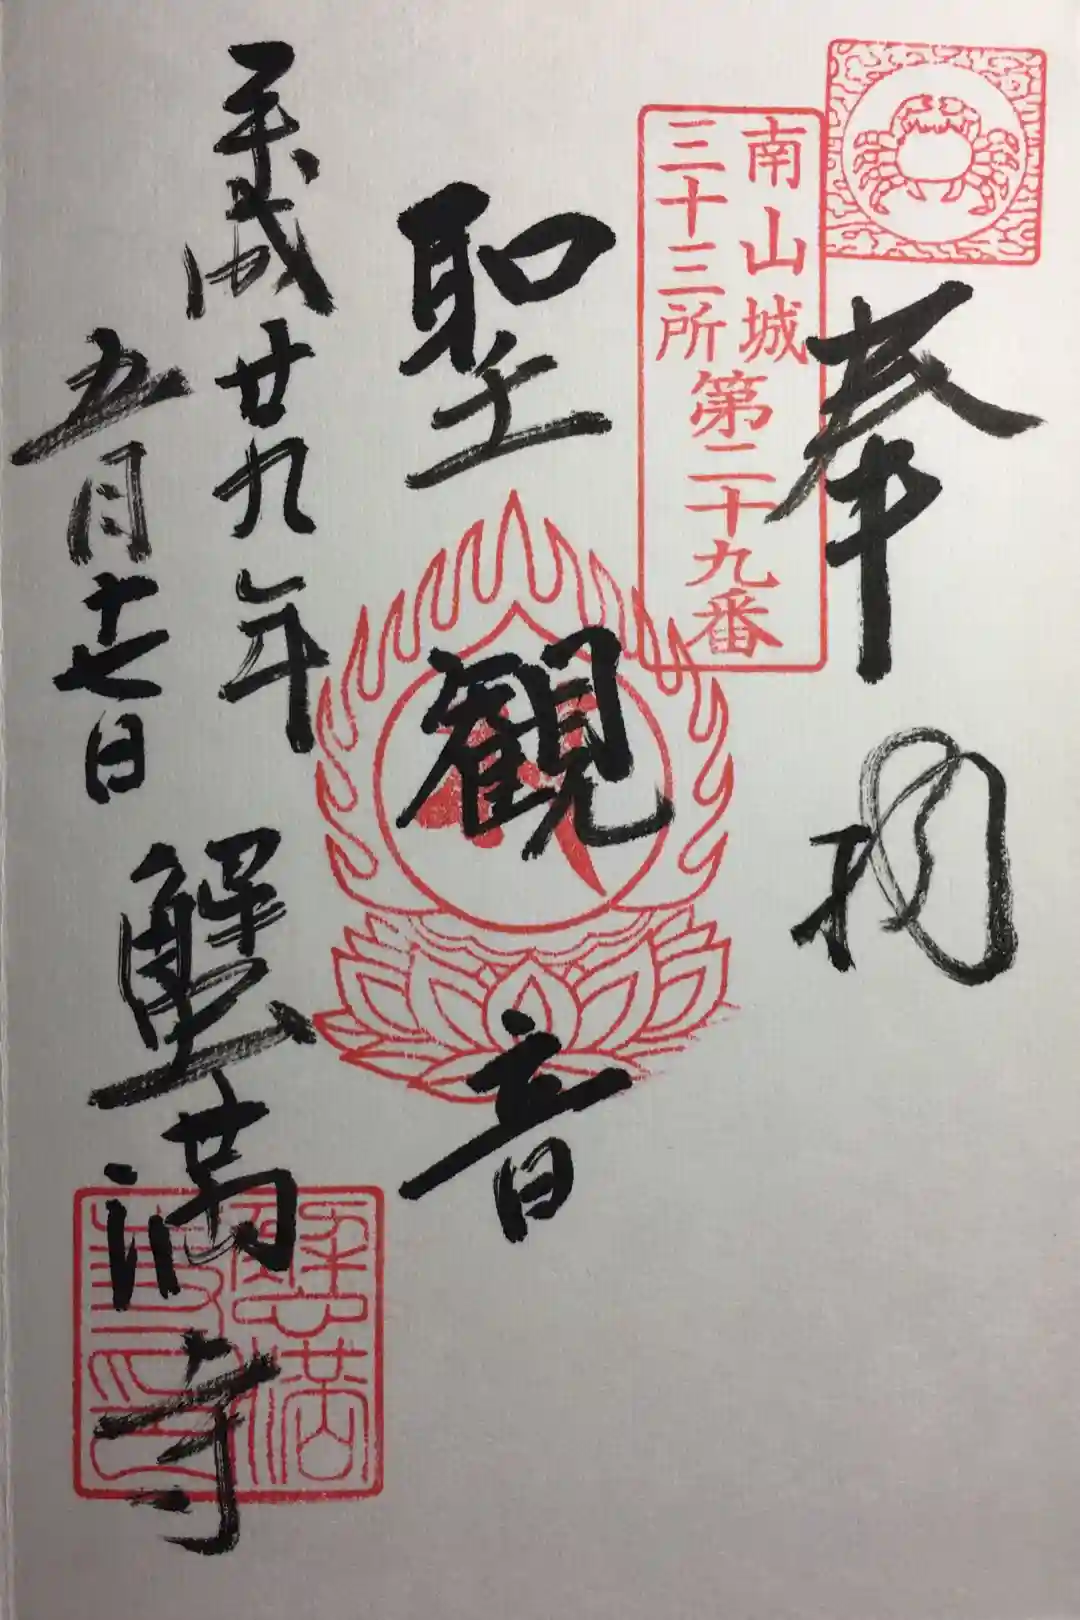 奉拝
南山城
三十三所
第二十九番
聖観音
平成廿九年
五月十七日
蟹満寺
蟹満
寺印